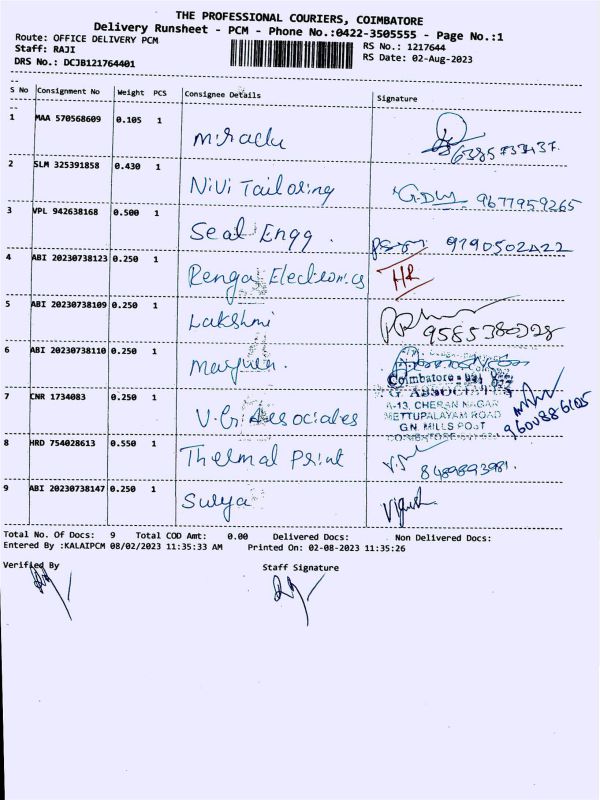 THE PROFESSIONAL COURIERS, COIMBATORE
Delivery Runsheet - PCM - Phone No.:0422-3505555 - Page No.:1
Route: OFFICE DELIVERY PCM
RS No.: 1217644
Staff: RAJI
RS Date: 02-Aug-2023
DRS No.: DCJB121764401
S No Consignment No Weight PCS Consignee Details Signature
1 MAA 570568609 0.105 1
2 SLM 325391858 0.430 1 Nivi Tailoring 9677959265
3 VPL 942638168 0.500 1 Seal Engg. 9790502422
4 ABI 20230738123 0.250 1 Renga Electronics HR
5 ABI 20230738109 0.250 1 Lakshmi
6 ABI 20230738110 0.250 1
Coimbatore
7 CNR 1734083 0.250 1 V.G. Associates
G ASSOCIATES
A-13, CHERAN NAGAR
METTUPALAYAM ROAD
G.N. MILLS POST
8 HRD 754028613 0.550 1 Thermal Print 8489893981.
9 ABI 20230738147 0.250 1 Surya
Total No. Of Docs: 9 Total COD Amt: 0.00 Delivered Docs: Non Delivered Docs:
Entered By :KALAIPCM 08/02/2023 11:35:33 AM Printed On: 02-08-2023 11:35:26
Verified By Staff Signature